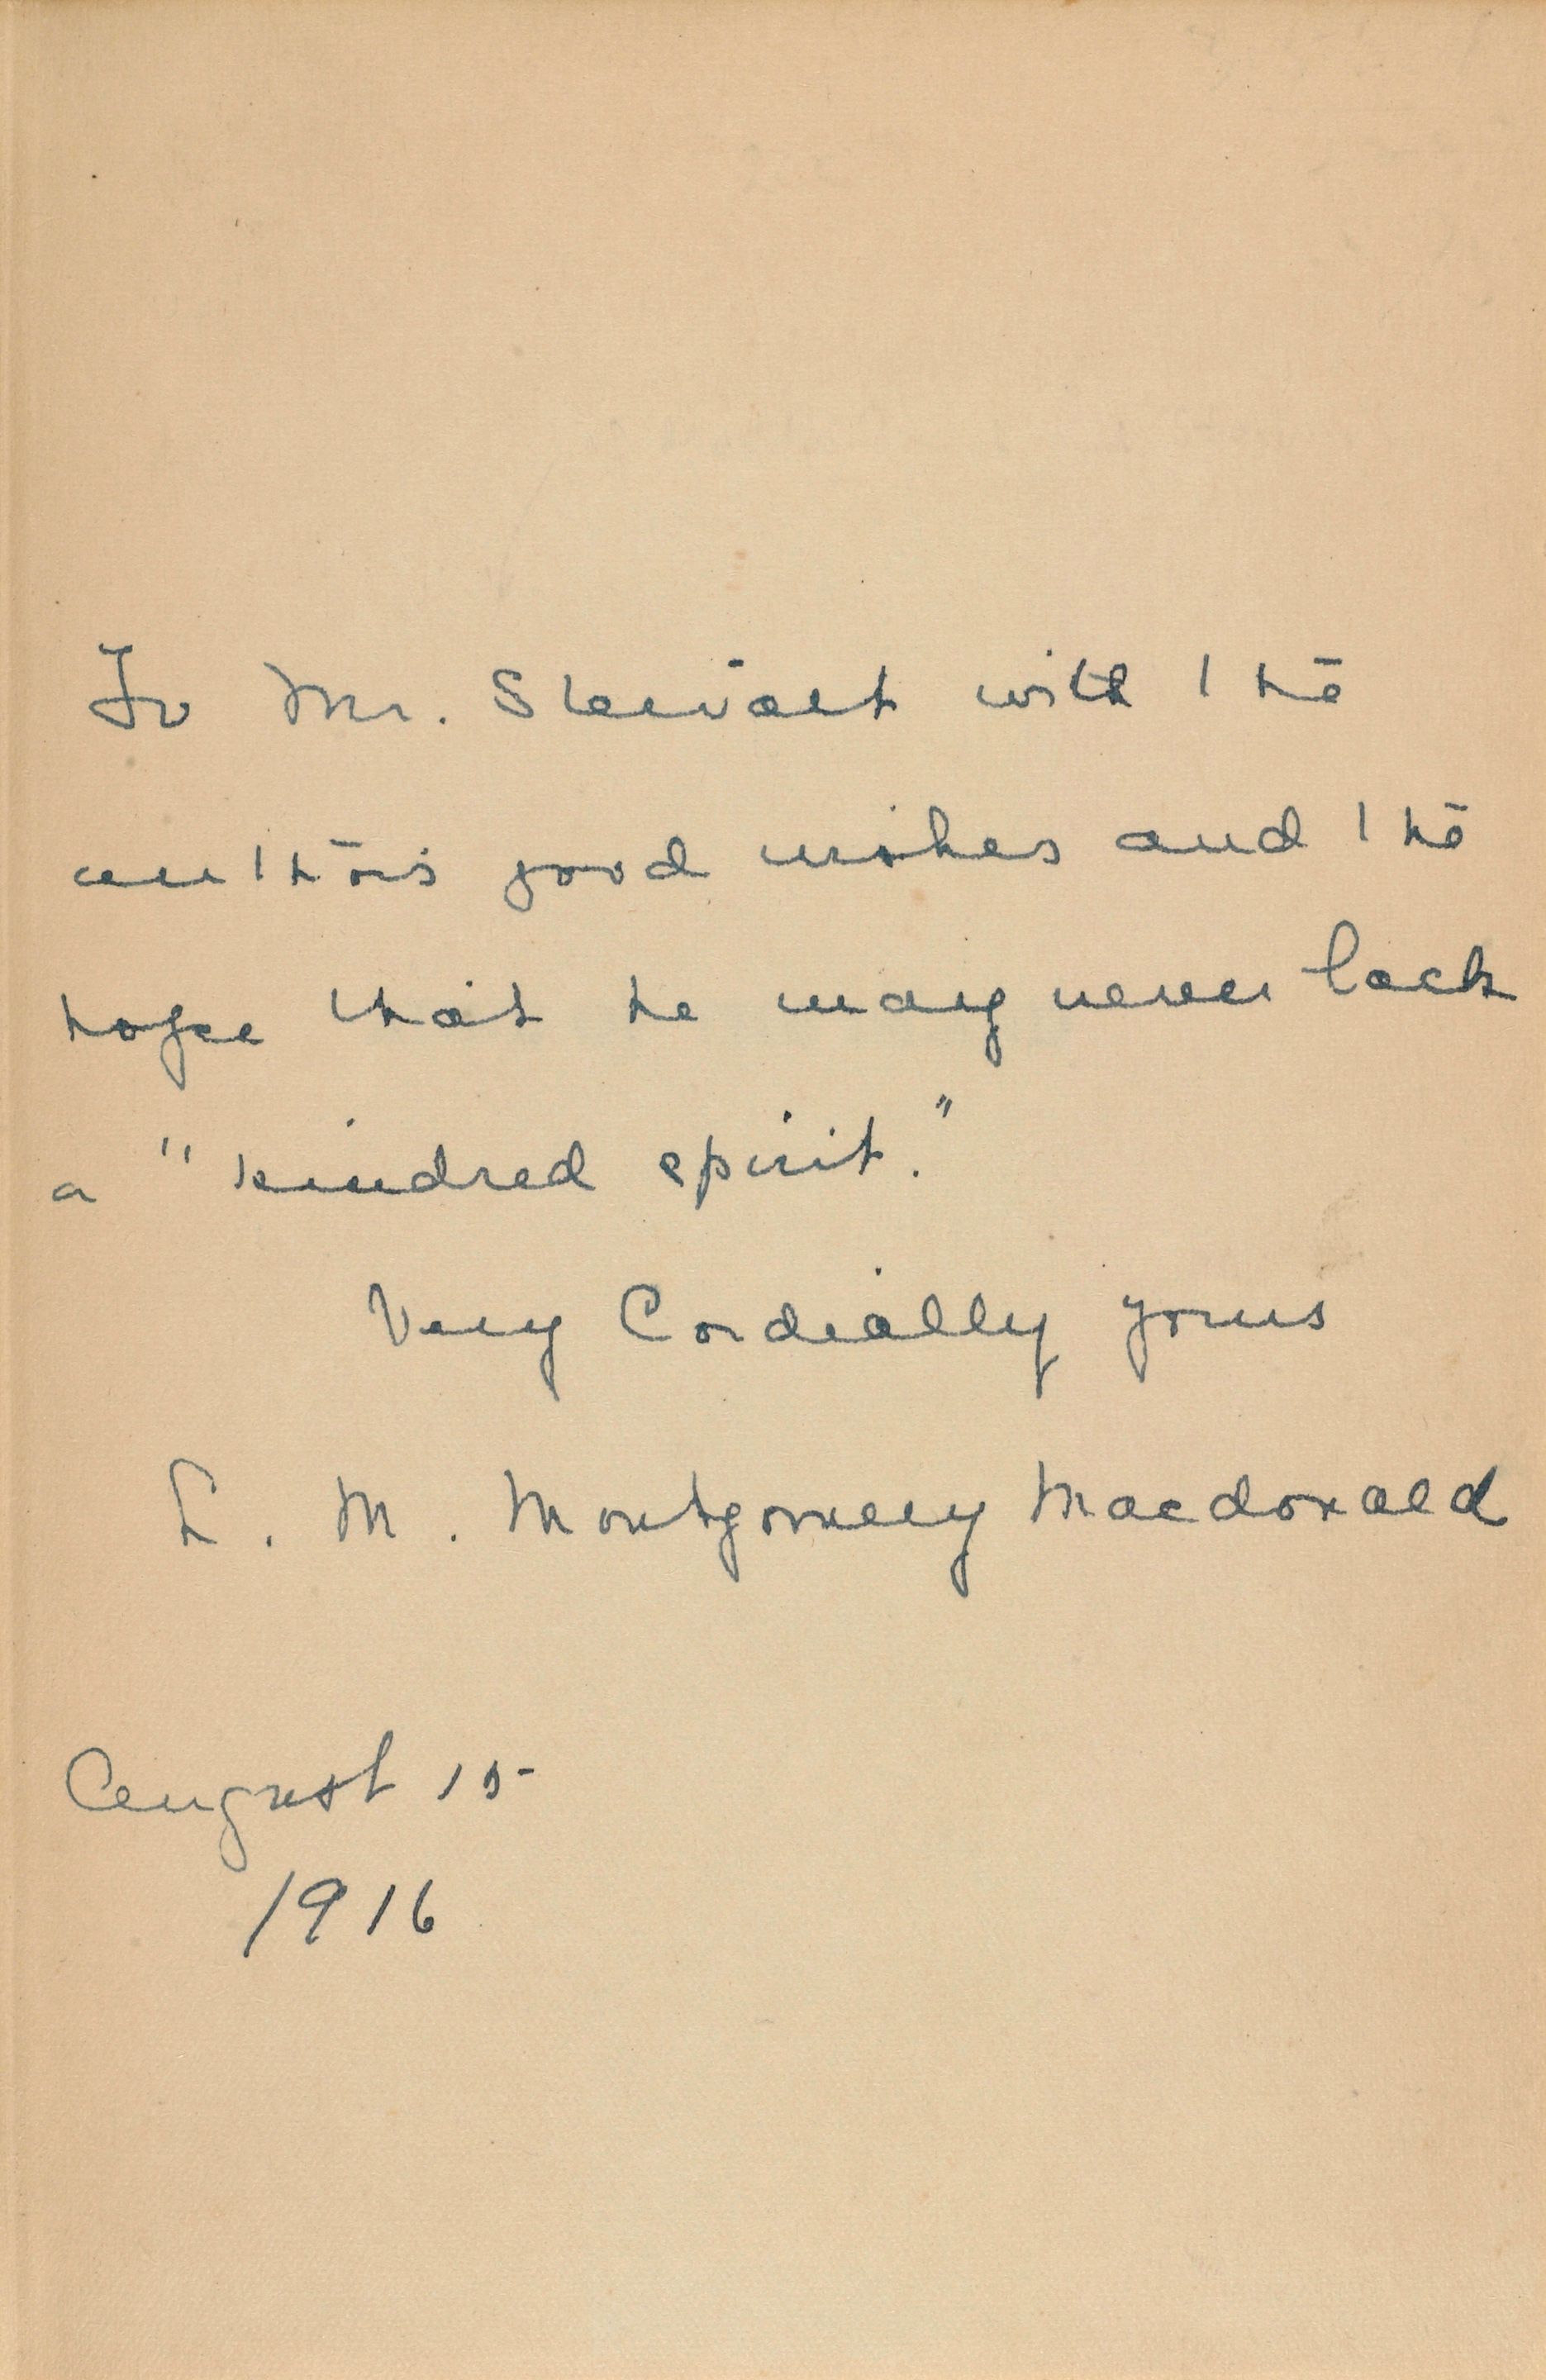 To Mr. Stewart with the
author's good wishes and the
hope that he may never lack
a "kindred spirit."
Very Cordially yours
L. M. Montgomery Macdonald
August 15
1916